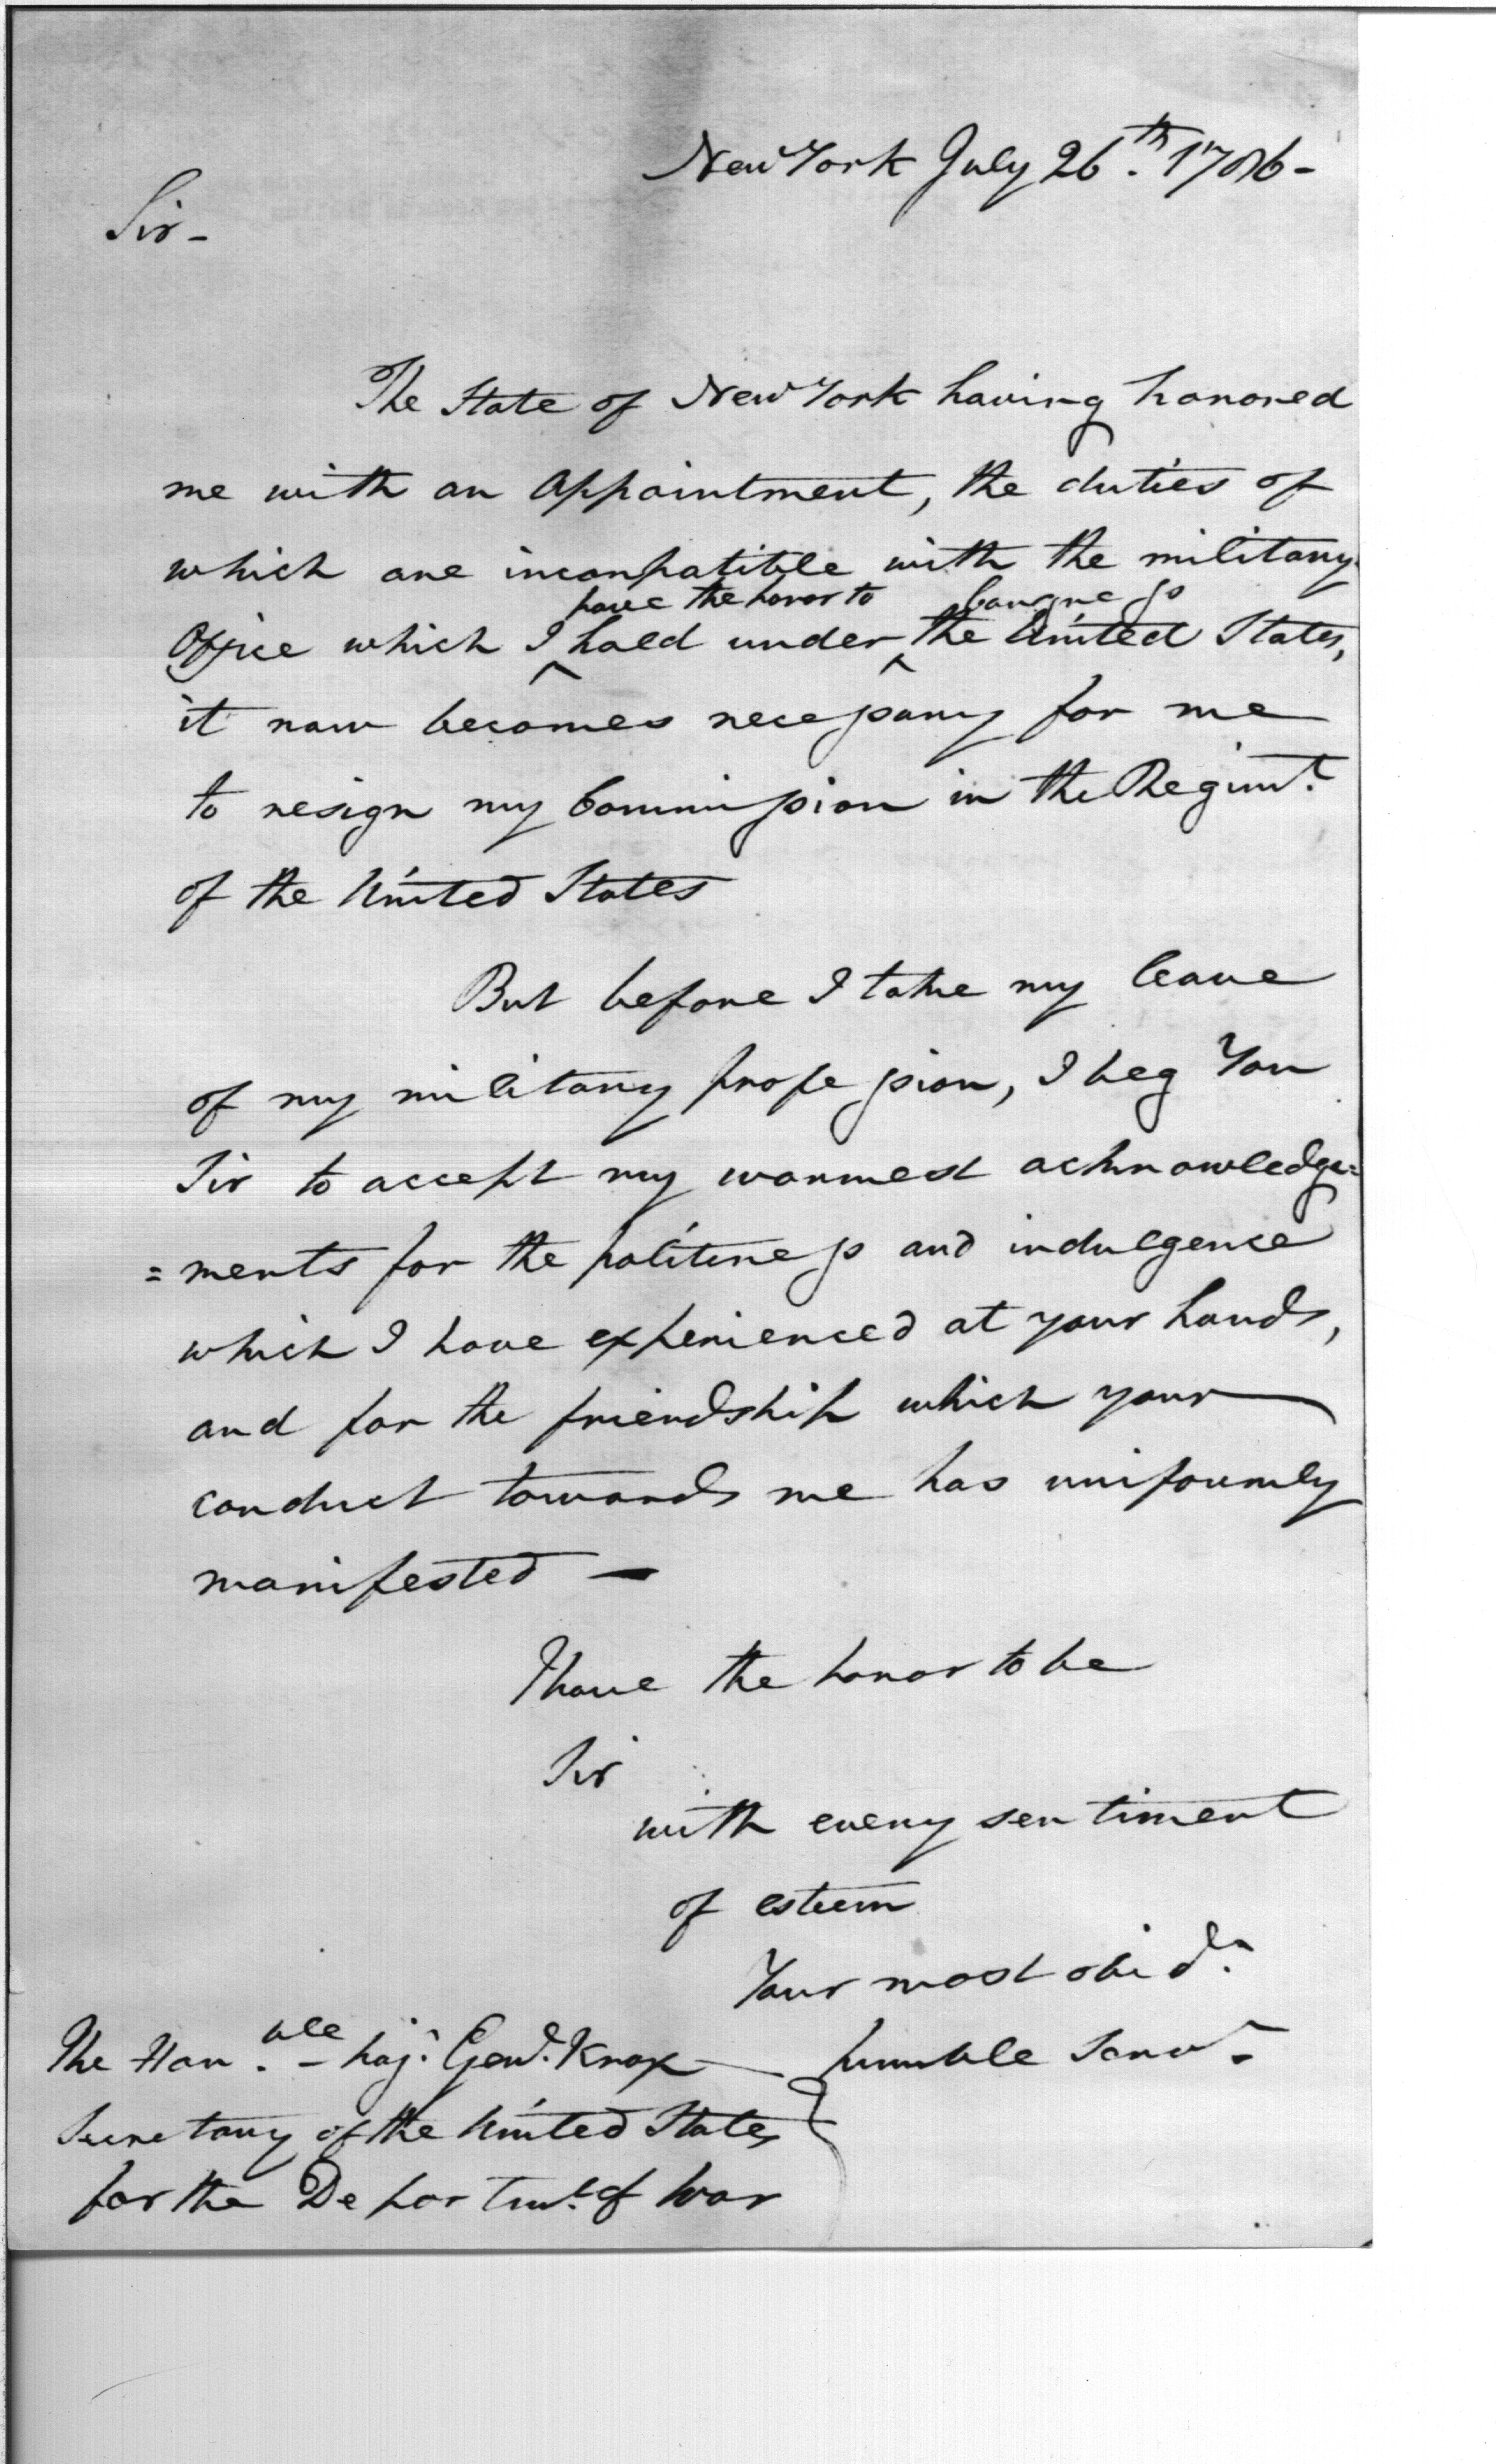 New York July 26.th 1786-
Sir-
The State of New York having honored
me with an Appointment, the duties of
which are incompatible with the military
have the honor to Congress
Office which I ^ hold under ^ the United States,
it now becomes necessary for me
to resign my Commission in the Regimt.
of the United States
But before I take my leave
of my military profession, I beg You
Sir to accept my warmest acknowledge=
=ments for the politeness and indulgence
which I have experienced at your hands,
and for the friendship which your
conduct towards me has uniformly
manifested —
I have the honor to be
Sir
with every sentiment
of esteem
Your most obed.
humble Serv.
The Hon.ble - Maj. Genl. Knox
Secretary of the United States
for the Departmt. of War